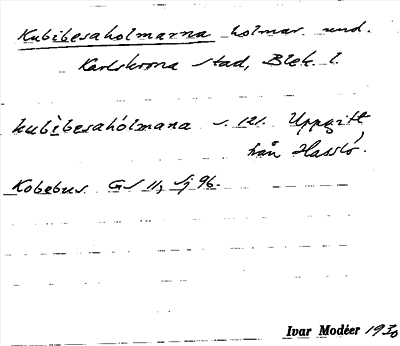 Kubibesaholmarna holmar und.
Karlskrona stad, Blek. l.
kubibesahólmana s. 121. Uppgift
från Hasslö.
Kobebus. GS 11, Sj 96.
Ivar Modéer 1930